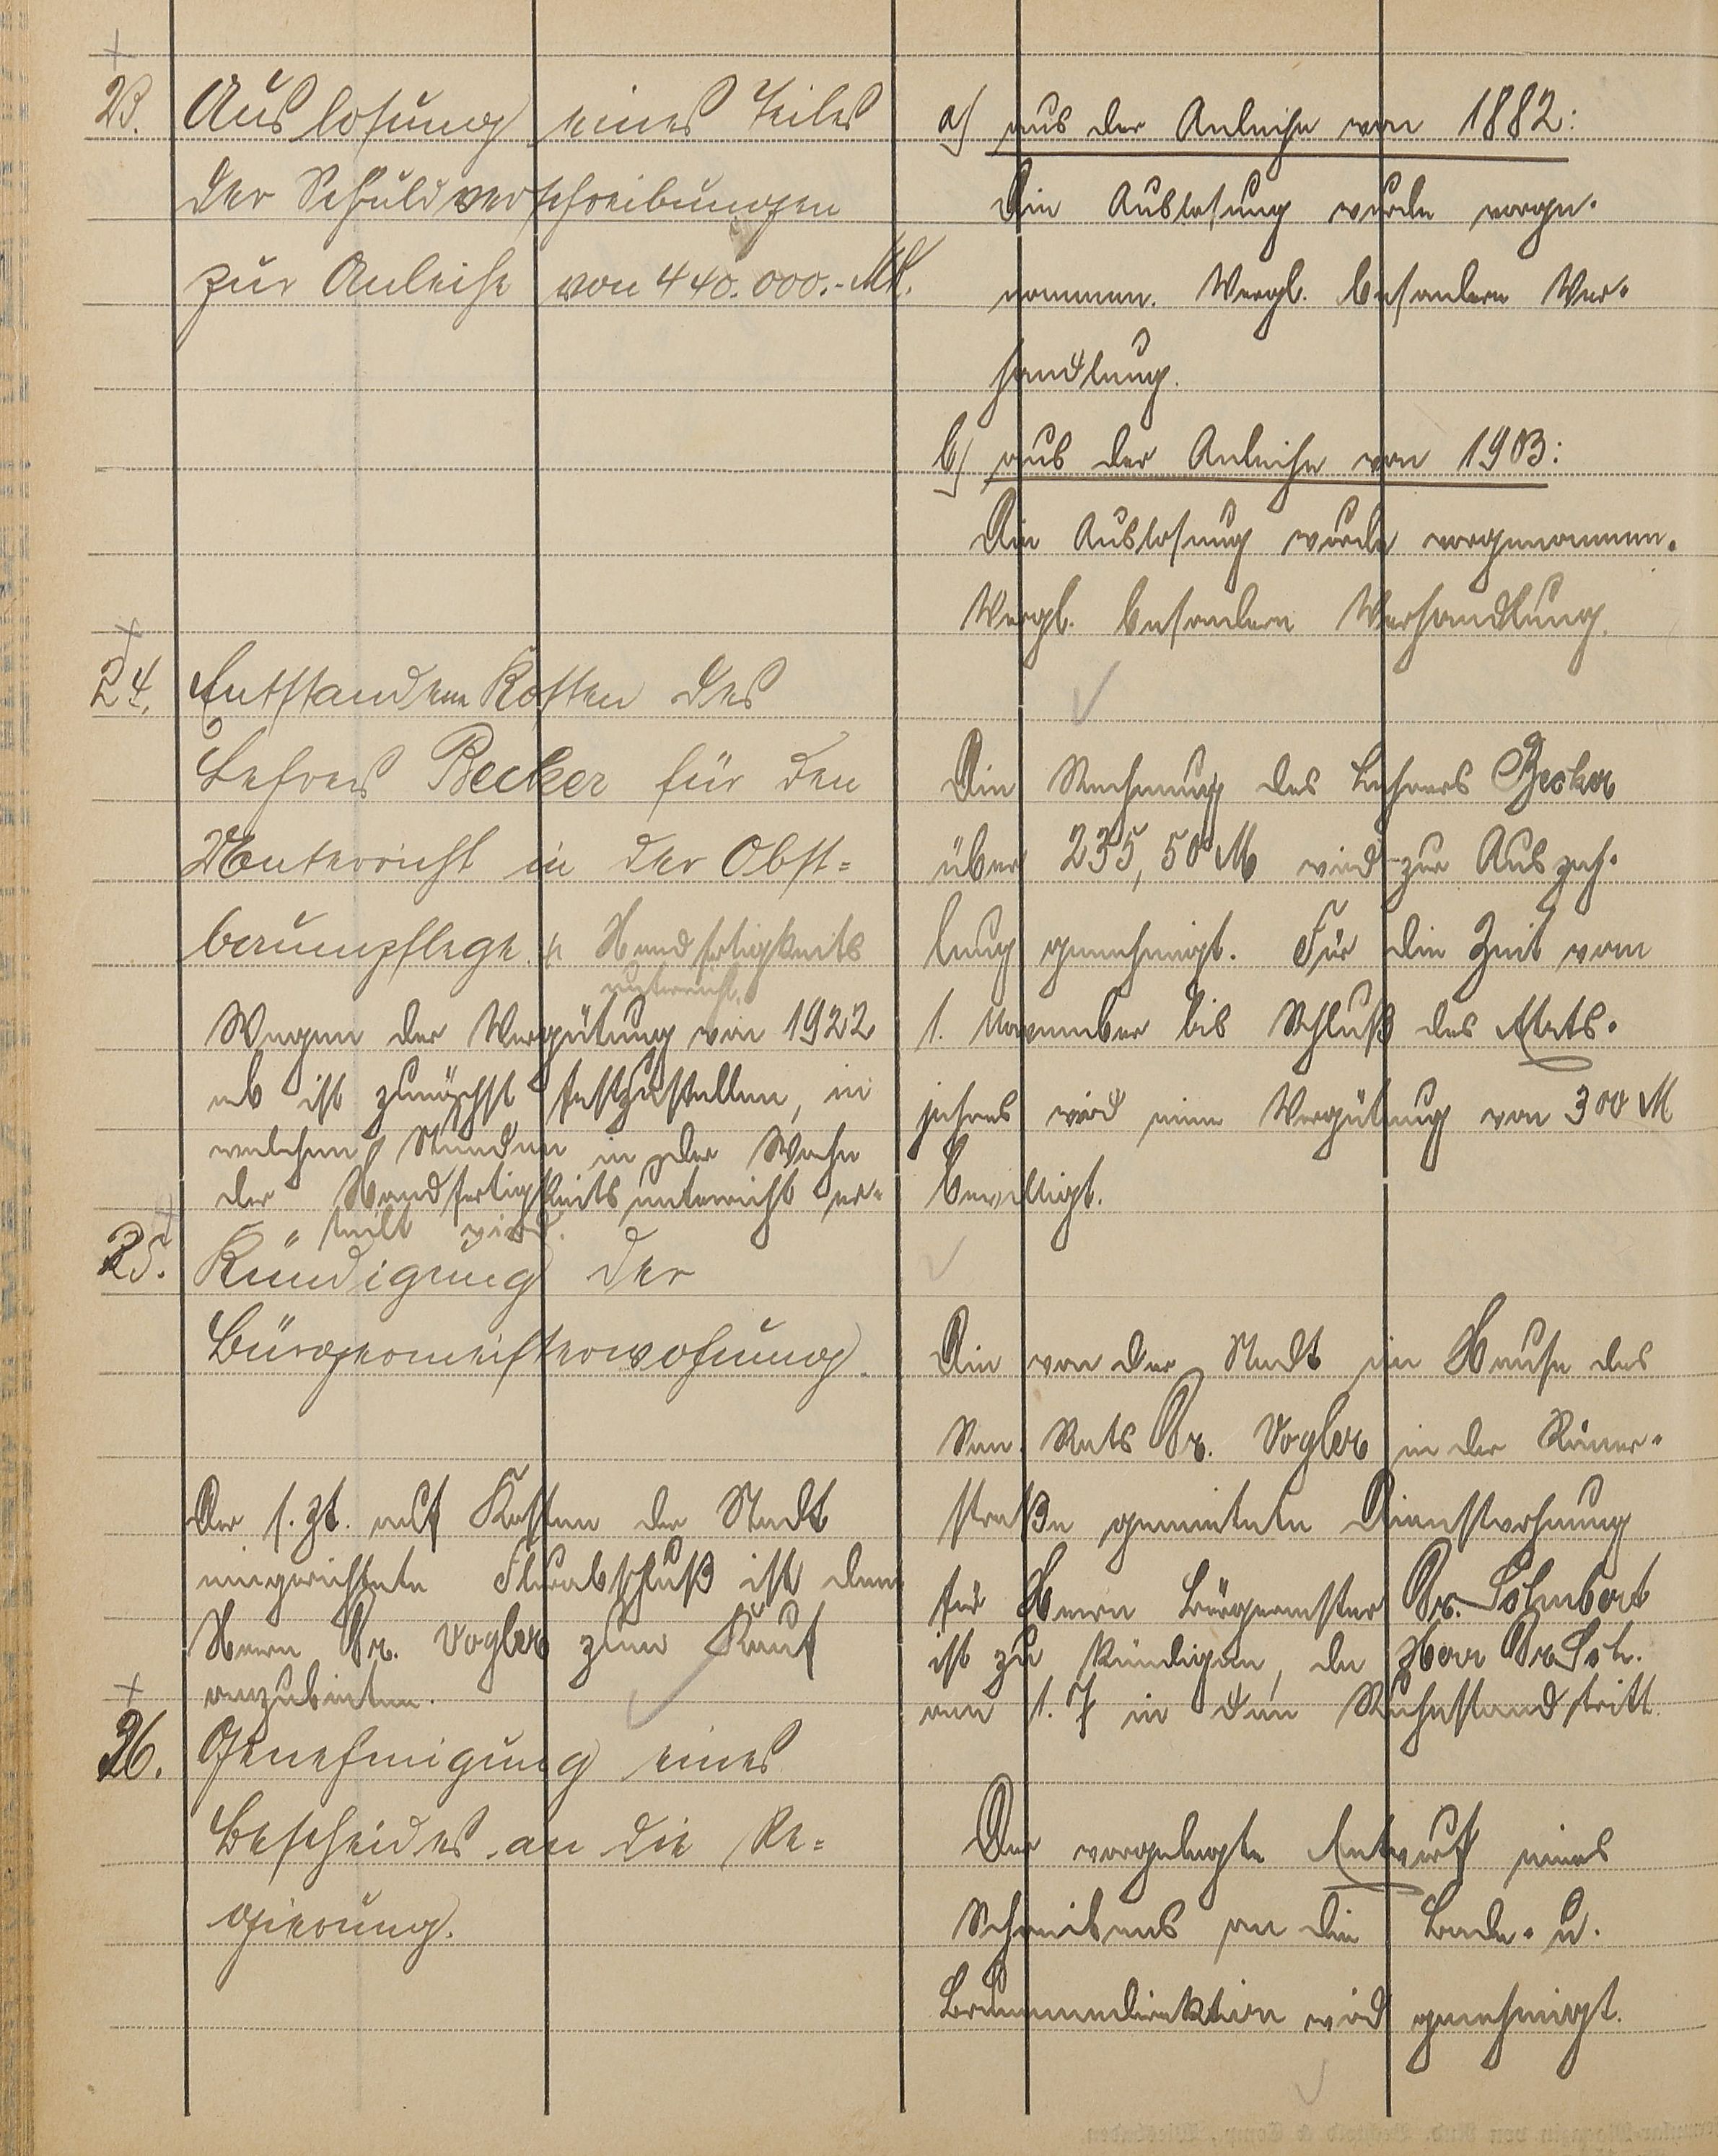 23. Auslosung eines Teiles
der Schuldverschreibungen
zur Anleihe von 440.000.- Mk.
a) aus der Anleihe von 1882:
Die Auslosung wurde vorge-
nommen. Vergl. besondere Ver-
handlung.
b) aus der Anleihe von 1903:
Die Auslosung wurde vorgenommen.
Vergl. besondere Verhandlung.
24. Entstandene Kosten des
Lehrers Becker für den
Unterricht in der Obst-
baumpflege. u. Handfertigkeits
unterricht.
Wegen der Vergütung von 1922
ab ist zunächst festzustellen, in
welchen Stunden in der Woche
der Handfertigkeitsunterricht er-
teilt wird.
Die Rechnung des Lehrers Becker
über 235,50 M wird zur Auszah-
lung genehmigt. Für die Zeit vom
1. November bis Schluß des Etats-
jahres wird eine Vergütung von 300 M
bewilligt.
25. Kündigung der
Bürgermeisterwohnung.
Der s. Zt. auf Kosten der Stadt
eingerichtete Flurabschluß ist dem
Herrn Dr. Vogler zum Kauf
anzubieten.
Die von der Stadt im Hause des
San. Rats Dr. Vogler in der Römer-
straße gemietete Dienstwohnung
für Herrn Bürgermster Dr.
ist zu kündigen, da Herr Dr.
am 1. 7 in den Ruhestand tritt.
26. Genehmigung eines
Bescheides an die Re-
gierung.
Der vorgelegte Entwurf eines
Schreibens an die Bade- u.
Brunnendirektion wird genehmigt.